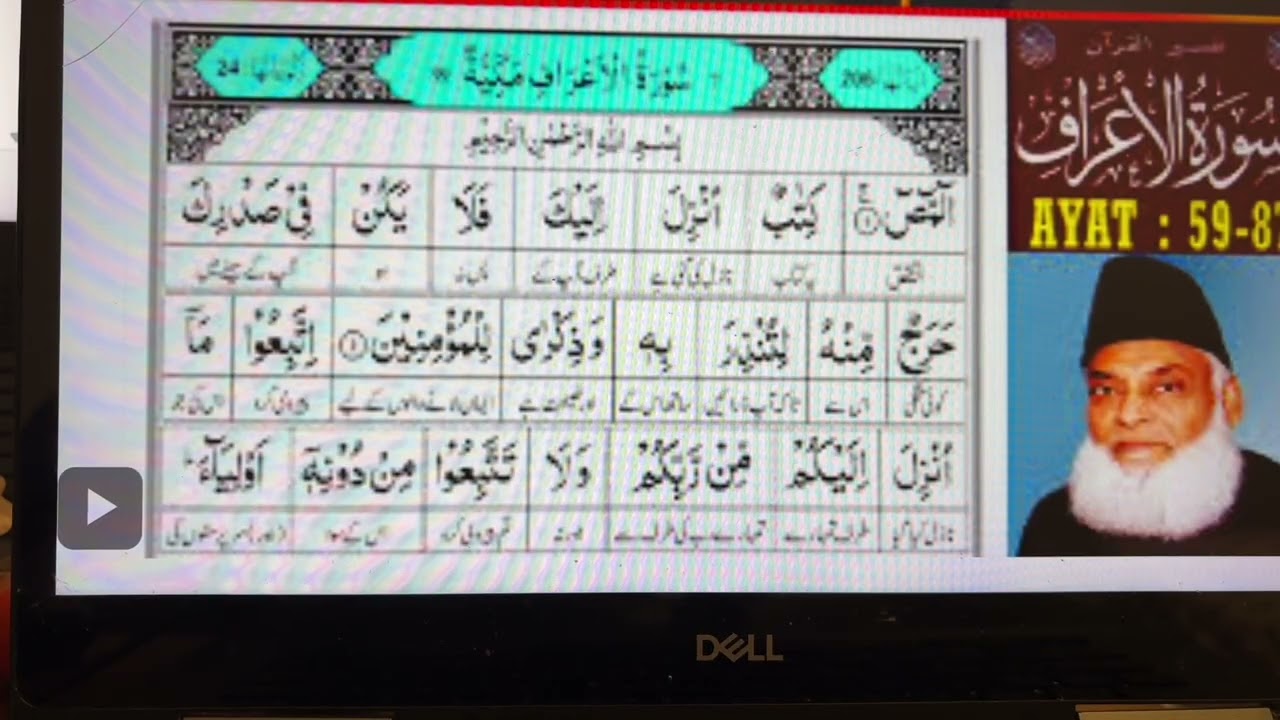 سُوْرَةُ الْاَعْرَافِ مَكِّيَّةٌ
24
206
بِسْمِ اللّٰهِ الرَّحْمٰنِ الرَّحِيْمِ
الٓمّٓصٓ ۚ ۱ كِتٰبٌ اُنْزِلَ اِلَيْكَ فَلَا يَكُنْ فِيْ صَدْرِكَ
المص یہ کتاب نازل کی گئی ہے طرف آپ کے ہو آپ کے سینے میں
حَرَجٌ مِّنْهُ لِتُنْذِرَ بِهٖ وَذِكْرٰى لِلْمُؤْمِنِيْنَ اِتَّبِعُوْا مَآ
کوئی تنگی اس سے تاکہ آپ ڈرائیں ساتھ اس کے اور نصیحت ہے ایمان لانے والوں کے لیے پیروی کرو اس کی جو
اُنْزِلَ اِلَيْكُمْ مِّنْ رَّبِّكُمْ وَلَا تَتَّبِعُوْا مِنْ دُوْنِهٖٓ اَوْلِيَآءَ
نازل کیا گیا طرف تمہارے تمہارے رب کی طرف سے اور نہ تم پیروی کرو اس کے سوا
تفسیر القرآن
سورة الأعراف
AYAT : 59-8
DELL